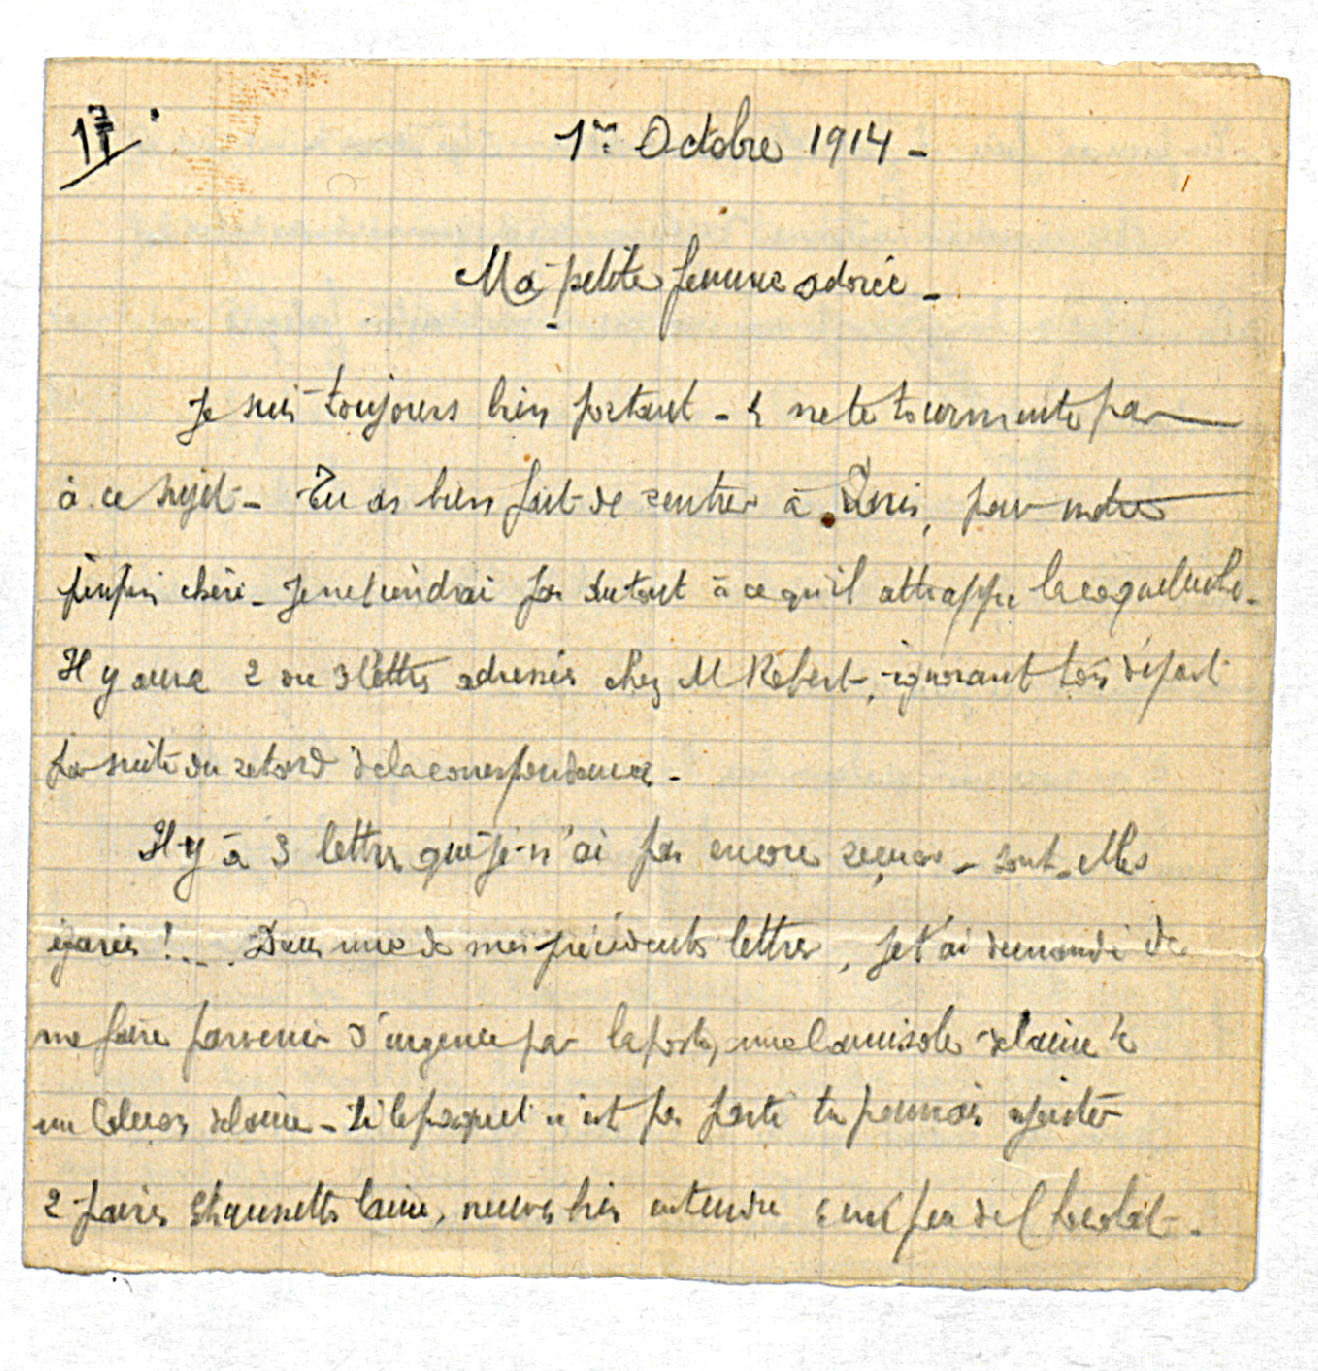 17
1er Octobre 1914 -
Ma petite femme adorée -
Je suis toujours bien portant - & ne te tourmente pas
à ce sujet - Tu as bien fait de rentrer à Paris, pour notre
pinpin chéri - Je ne tiendrai pas du tout à ce qu'il attrappe la coqueluche -
Il y aura 2 ou 3 lettres adressées chez M Robert, ignorant ton départ
par suite du retard de la correspondance -
Il y à 3 lettres que je n'ai pas encore reçues - sont-elles
égarées !... Dans une de mes précédents lettres, je t'ai demandé de
me faire parvenir d'urgence par la poste, une Camisole de laine &
un Caleçon de laine - Si le paquet n'est pas parti tu pourrais ajouter
2 paires Chaussettes laine, neuves bien entendu & un peu de Chocolat -